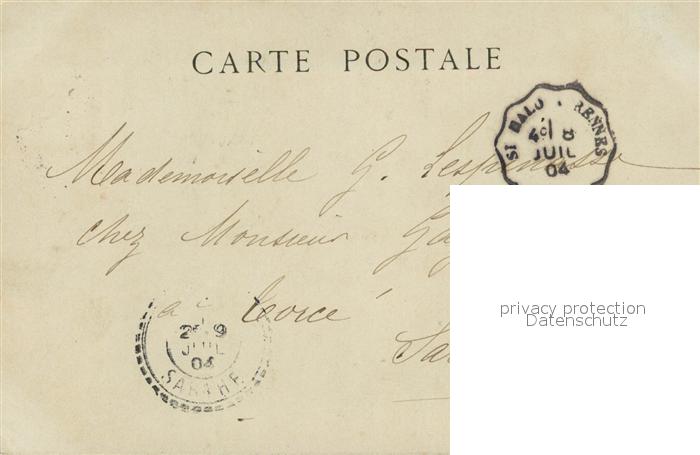 CARTE POSTALE
ST MALO . RENNES
8
JUIL
04
Mademoiselle G. Lespinasse
chez Monsieur
à Torcé
JUIL
04
SARTHE
privacy protection
Datenschutz